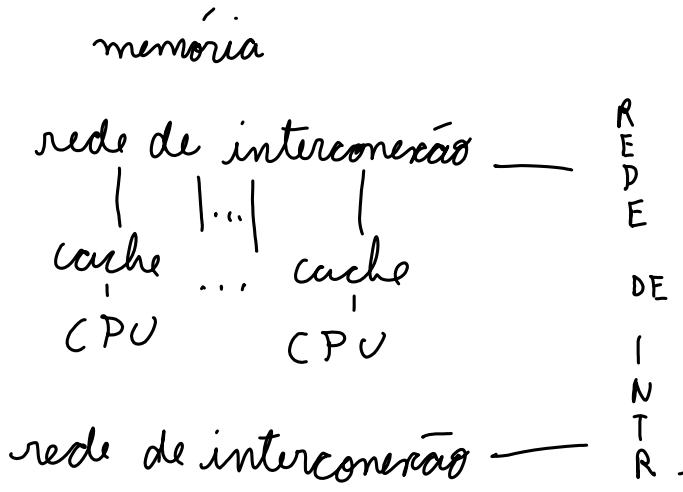 memória
rede de interconexão
... 
cache ... cache
CPU CPU
rede de interconexão
REDE DE INTR.